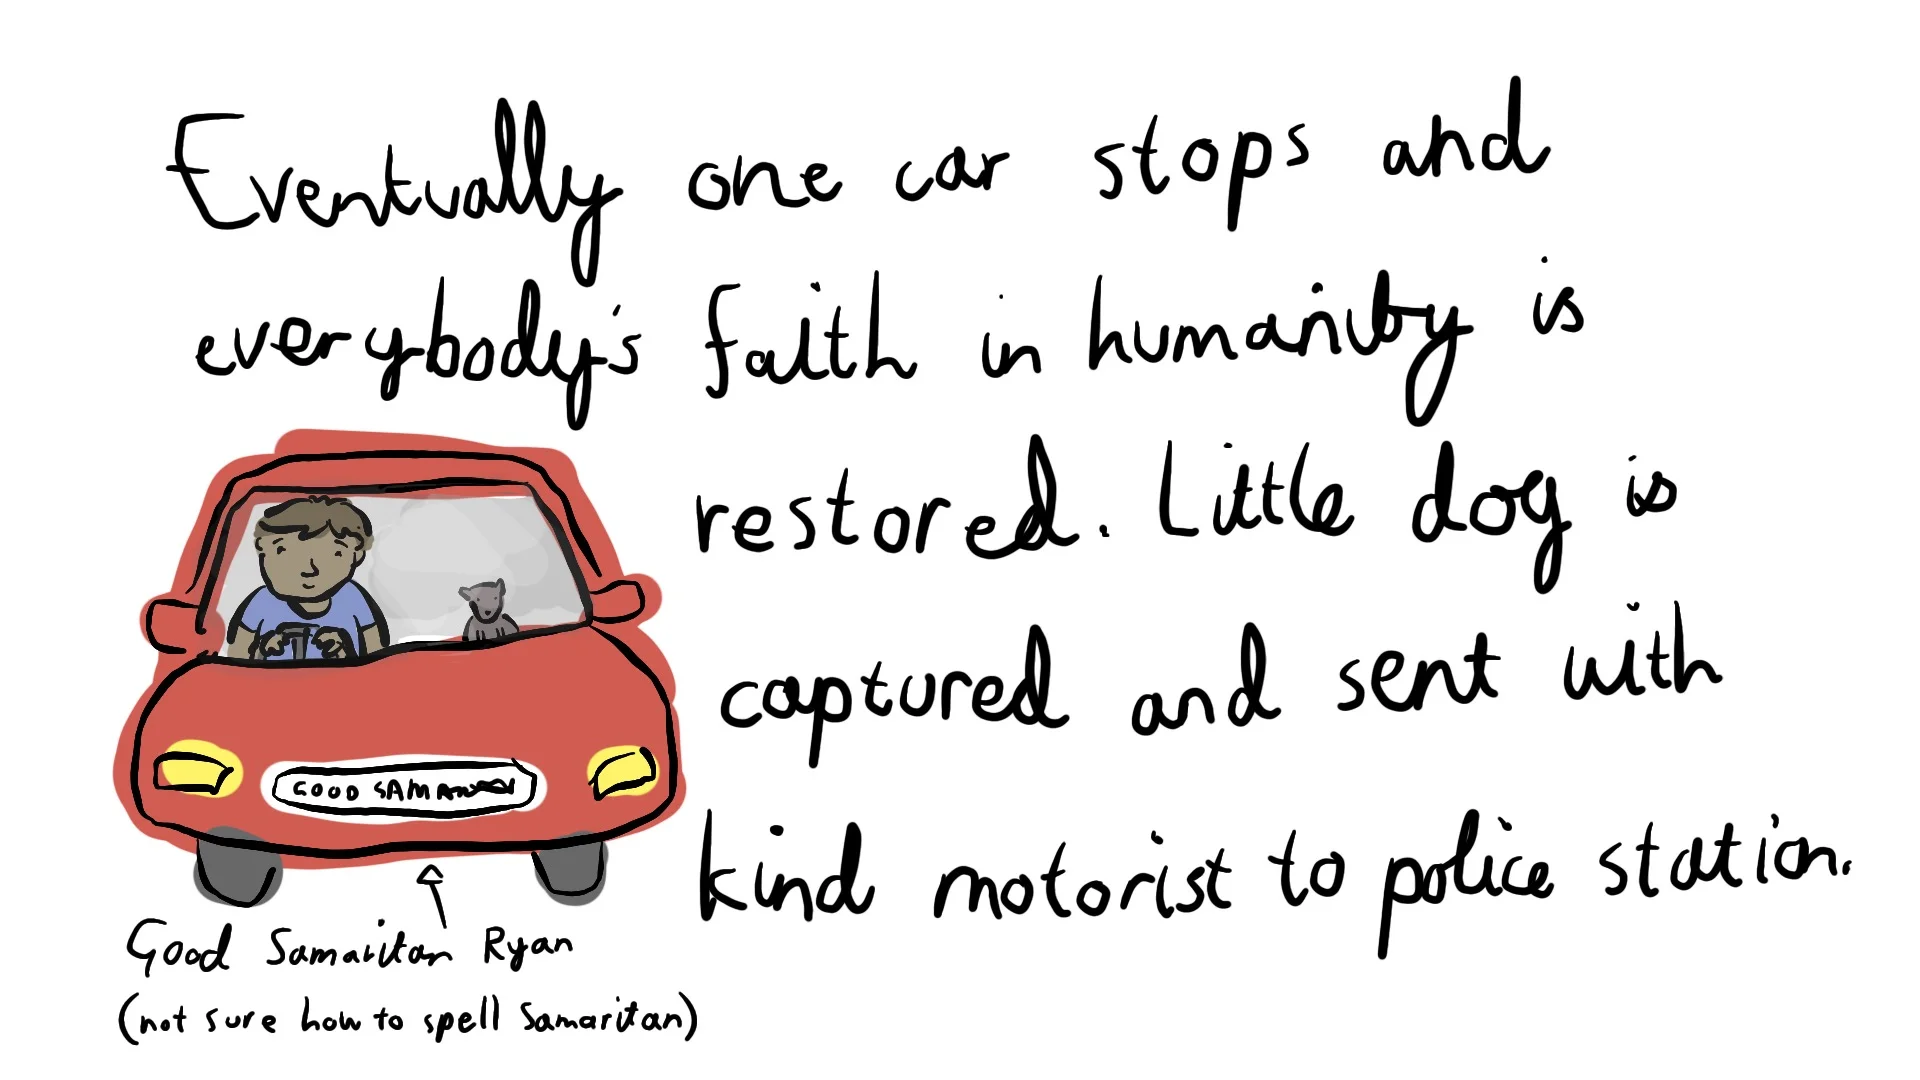 Eventually one car stops and
everybody's faith in humanity is
restored. Little dog is
captured and sent with
kind motorist to police station.
GOOD
Good Samaritan Ryan
(not sure how to spell Samaritan)